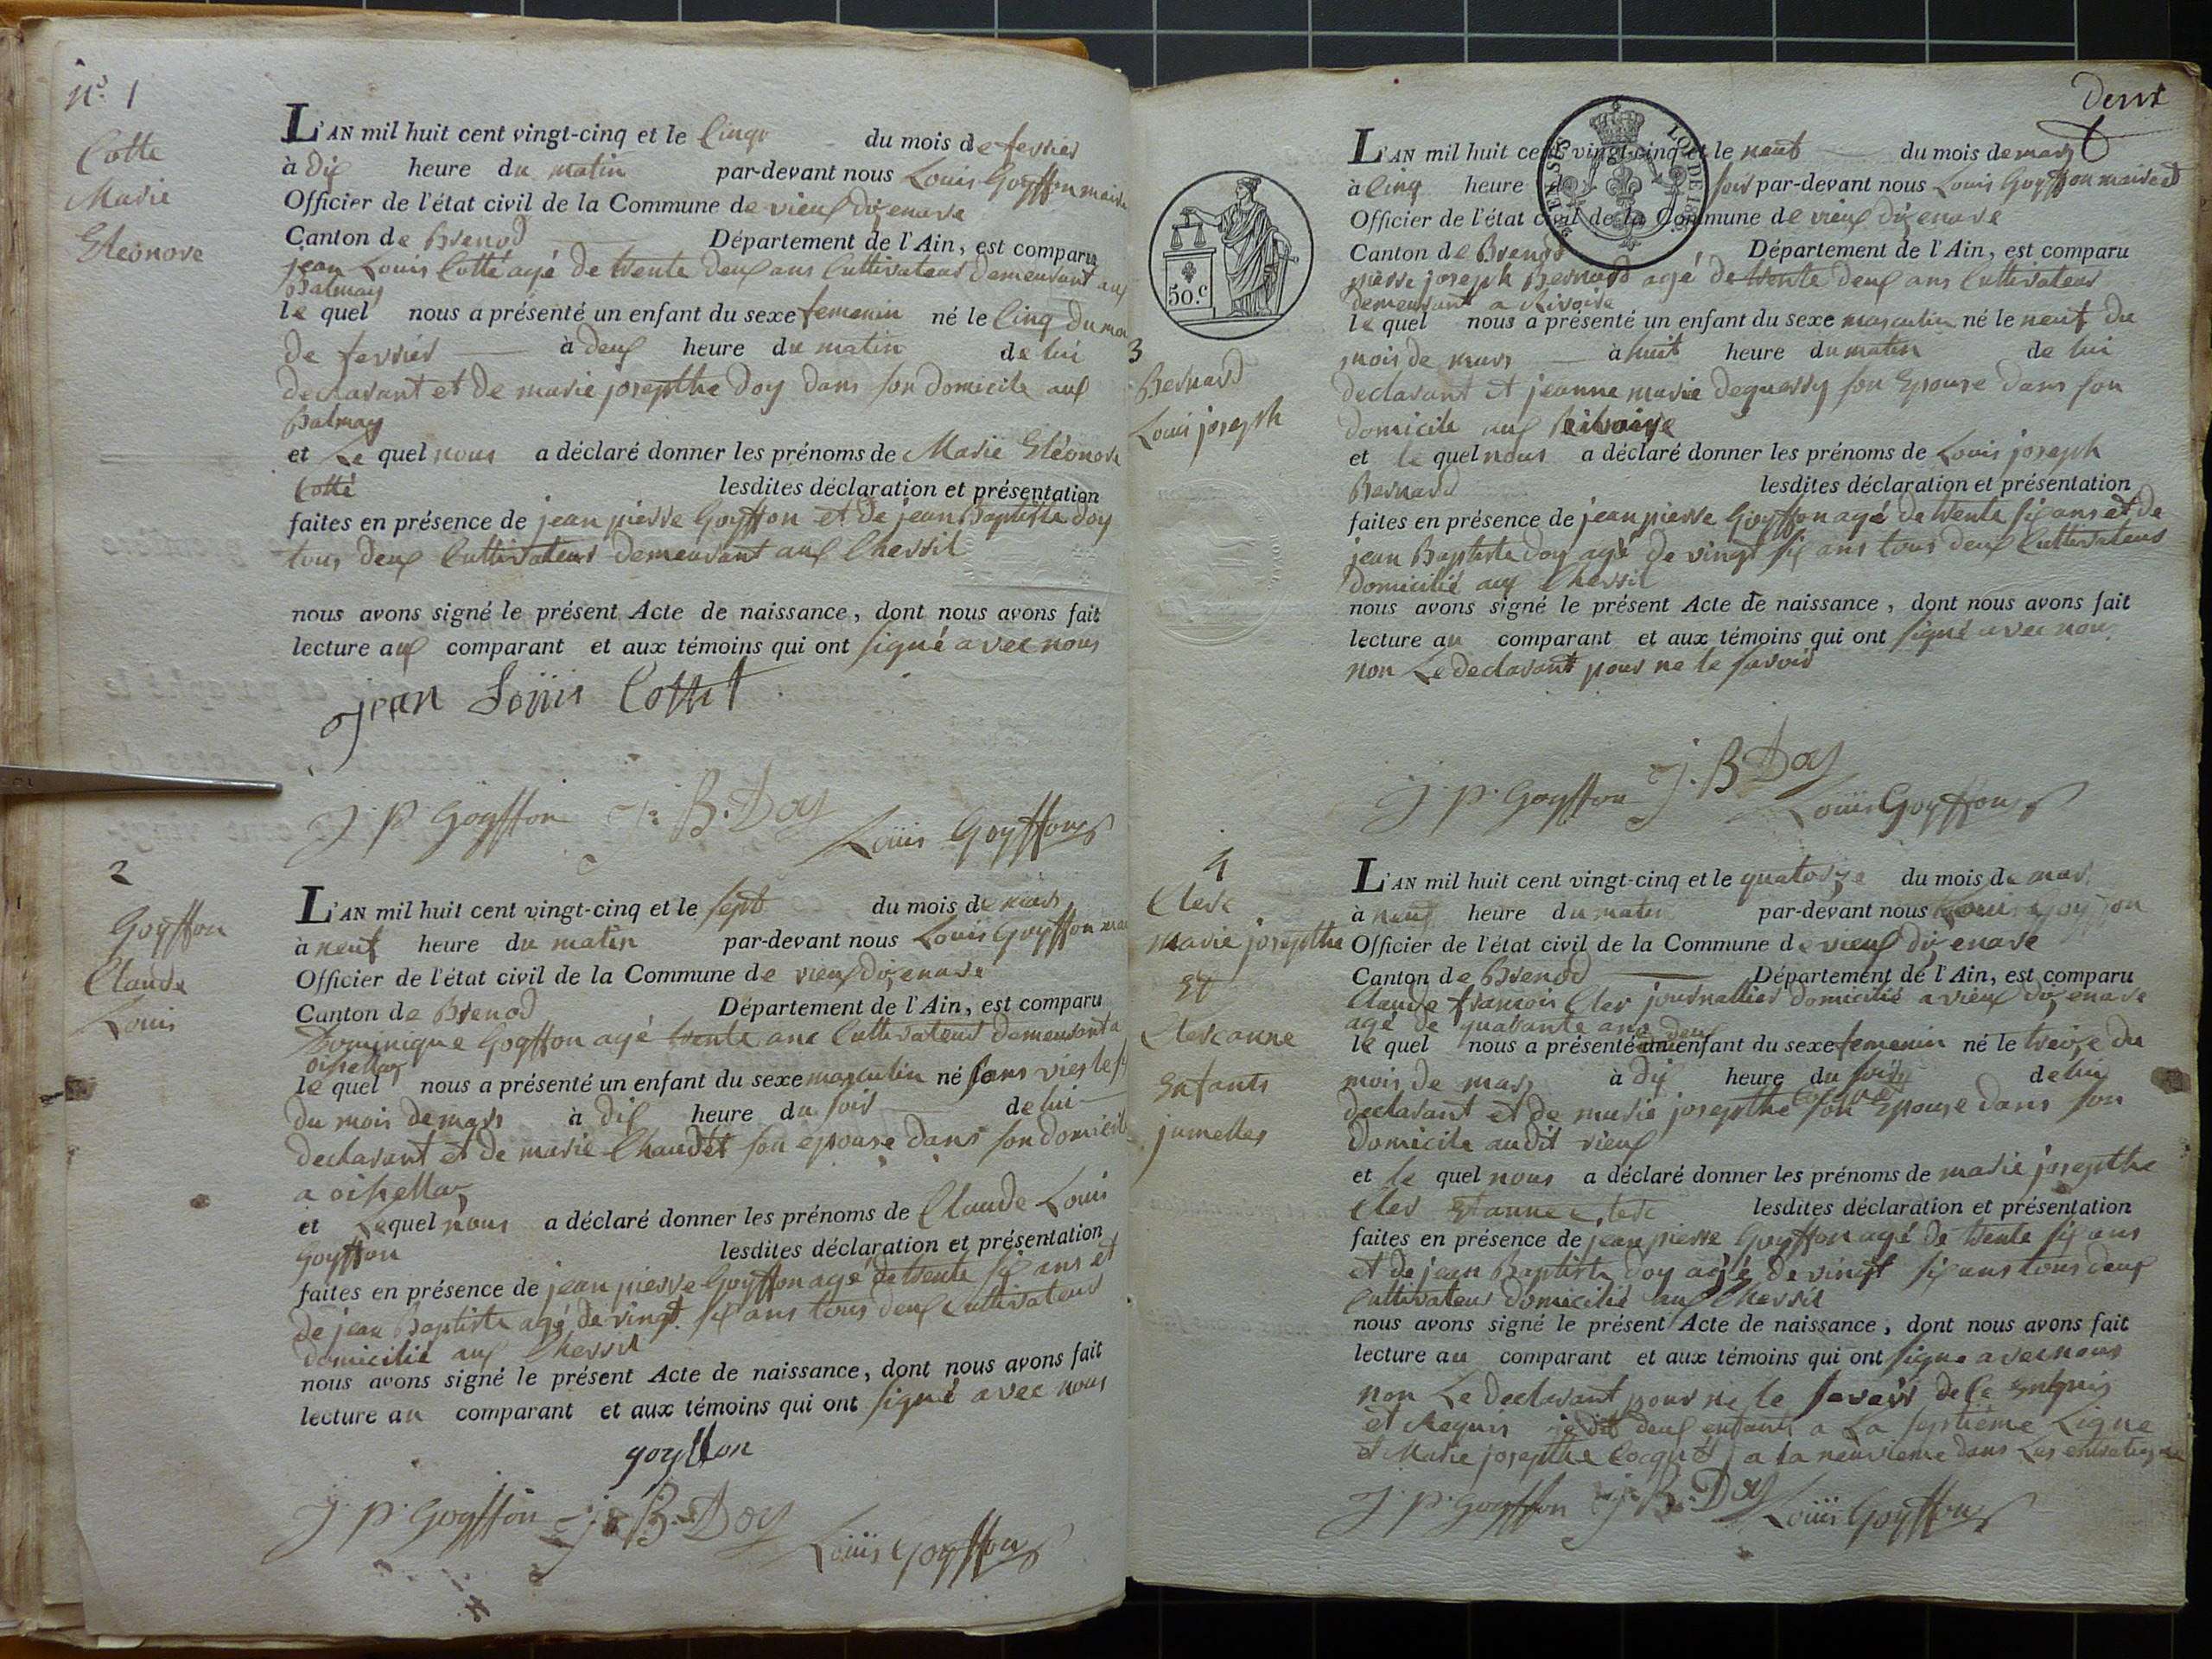 n.º 1
Cotte
Marie
Eléonore
L'AN mil huit cent vingt-cinq et le Cinq du mois de fevrier
à dix heure du matin par-devant nous Louis Goyffon maire
Officier de l'état civil de la Commune de vieux dizenave
Canton de Brenod Département de l'Ain, est comparu
jean Louis Cotte agé de trente deux ans Cultivateur demeurant aux
Balmay
le quel nous a présenté un enfant du sexe femenin né le Cinq du moi
de fevrier à deux heure du matin de lui
declarant et de marie josepthe doy dans son domicile aux
Balmay
et Le quel nous a déclaré donner les prénoms de Marie Eléonore
Cotte lesdites déclaration et présentation
faites en présence de jean pierre Goyffon et de jean Baptiste doy
tous deux Cultivateurs demeurant aux Chevril
nous avons signé le présent Acte de naissance, dont nous avons fait
lecture aux comparant et aux témoins qui ont signé avec nous
jean Loüis Cottet
J. P. Goyffon J. B. Doy Loüis Goyffon
2
Goyffon
Claude
Louis
L'AN mil huit cent vingt-cinq et le sept du mois de mars
à neuf heure du matin par-devant nous Louis Goyffon mai
Officier de l'état civil de la Commune de vieux dizenave
Canton de Brenod Département de l'Ain, est comparu
Dominique Goyffon agé trente ans Cultivateur demeurant a
oisellaz
le quel nous a présenté un enfant du sexe masculin né
du mois de mars à dix heure du soir de lui
declarant et de marie Chaudet son epouse dans son domicile
a oisellaz
et Lequel nous a déclaré donner les prénoms de Claude Louis
Goyffon lesdites déclaration et présentation
faites en présence de jean pierre Goyffon agé de trente six ans et
de jean Baptiste agé de vingt six ans tous deux Cultivateurs
domicilié aux Chevril
nous avons signé le présent Acte de naissance, dont nous avons fait
lecture au comparant et aux témoins qui ont signé avec nous
goyffon
J. P. Goyffon J. B. Doy Loüis Goyffon
deux
50.C
3
Bernard
Louis joseph
L'AN mil huit cent vingt-cinq et le neuf du mois de mars
à Cinq heure soir par-devant nous Louis Goyffon maire et
Officier de l'état civil de la Commune de vieux dizenave
Canton de Brenod Département de l'Ain, est comparu
pierre joseph Bernard agé de trente deux ans Cultivateur
demeurant a Rivoire
le quel nous a présenté un enfant du sexe masculin né le neuf du
mois de mars à huit heure du matin de lui
declarant et jeanne marie deguerry son Epouse dans son
domicile aux Rivoire
et le quel nous a déclaré donner les prénoms de Louis joseph
Bernard lesdites déclaration et présentation
faites en présence de jean pierre Goyffon agé de trente six ans et de
jean Baptiste doy agé de vingt six ans tous deux Cultivateurs
domicilié aux Chevril
nous avons signé le présent Acte de naissance, dont nous avons fait
lecture au comparant et aux témoins qui ont signé avec nous
non Le declarant pour ne le savoir
J. P. Goyffon J. B Doy
Loüis Goyffon
4
Clerc
marie josepthe
Et
Clerc anne
Enfants
jumelles
L'AN mil huit cent vingt-cinq et le quatorze du mois de mars
à neuf heure du matin par-devant nous Louis Goyffon
Officier de l'état civil de la Commune de vieux dizenave
Canton de Brenod Département de l'Ain, est comparu
Claude francois Cler journallier domicilié a vieux dizenave
agé de quarante ans
le quel nous a présenté deux enfant du sexe femenin né le treize du
mois de mars à dix heure du soir de lui
declarant et de marie josepthe Cocquet son Epouse dans son
domicile audit vieux
et le quel nous a déclaré donner les prénoms de marie josepthe
Cler Et anne Clerc lesdites déclaration et présentation
faites en présence de jean pierre Goyffon agé de trente six ans
et de jean Baptiste doy agé de vingt six ans tous deux
Cultivateurs domicilié aux Chevril
nous avons signé le présent Acte de naissance, dont nous avons fait
lecture au comparant et aux témoins qui ont signé avec nous
non Le declarant pour ne le savoir de ce Enquis
et Requis deux enfants a La septième Ligne
et Marie josepthe Cocquet a la neuvieme dans Les
J. P. Goyffon J. B. Doy Loüis Goyffon